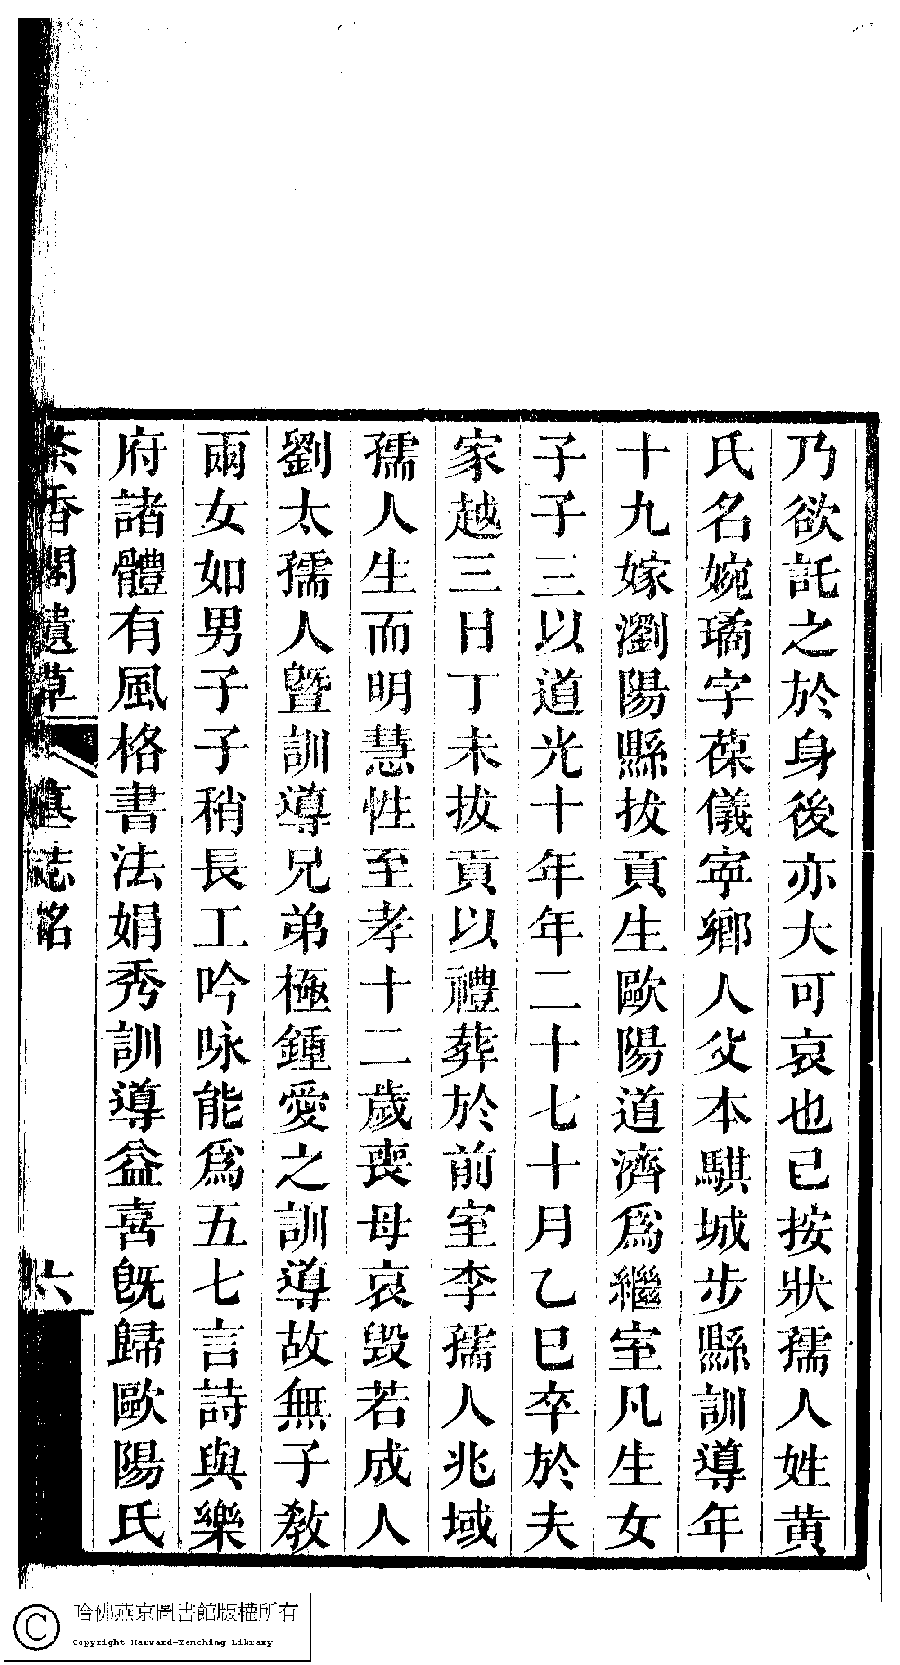 乃欲託之於身後亦大可哀也已按狀孺人姓黄
氏名婉璚字葆儀寜鄉人父本騏城步縣訓導年
十九嫁瀏陽縣拔貢生歐陽道濟爲繼室凡生女
子子三以道光十年年二十七十月乙巳卒於夫
家越三日丁未拔貢以禮葬於前室李孺人兆域
孺人生而明慧性至孝十二歲喪母哀毀若成人
劉太孺人曁訓導兄弟極鍾愛之訓導故無子教
兩女如男子子稍長工吟咏能爲五七言詩與樂
府諸體有風格書法娟秀訓導益喜旣歸歐陽氏
茶香閣遺草 墓誌銘 六
哈佛燕京圖書館版權所有
Copyright Harvard-Yenching Library